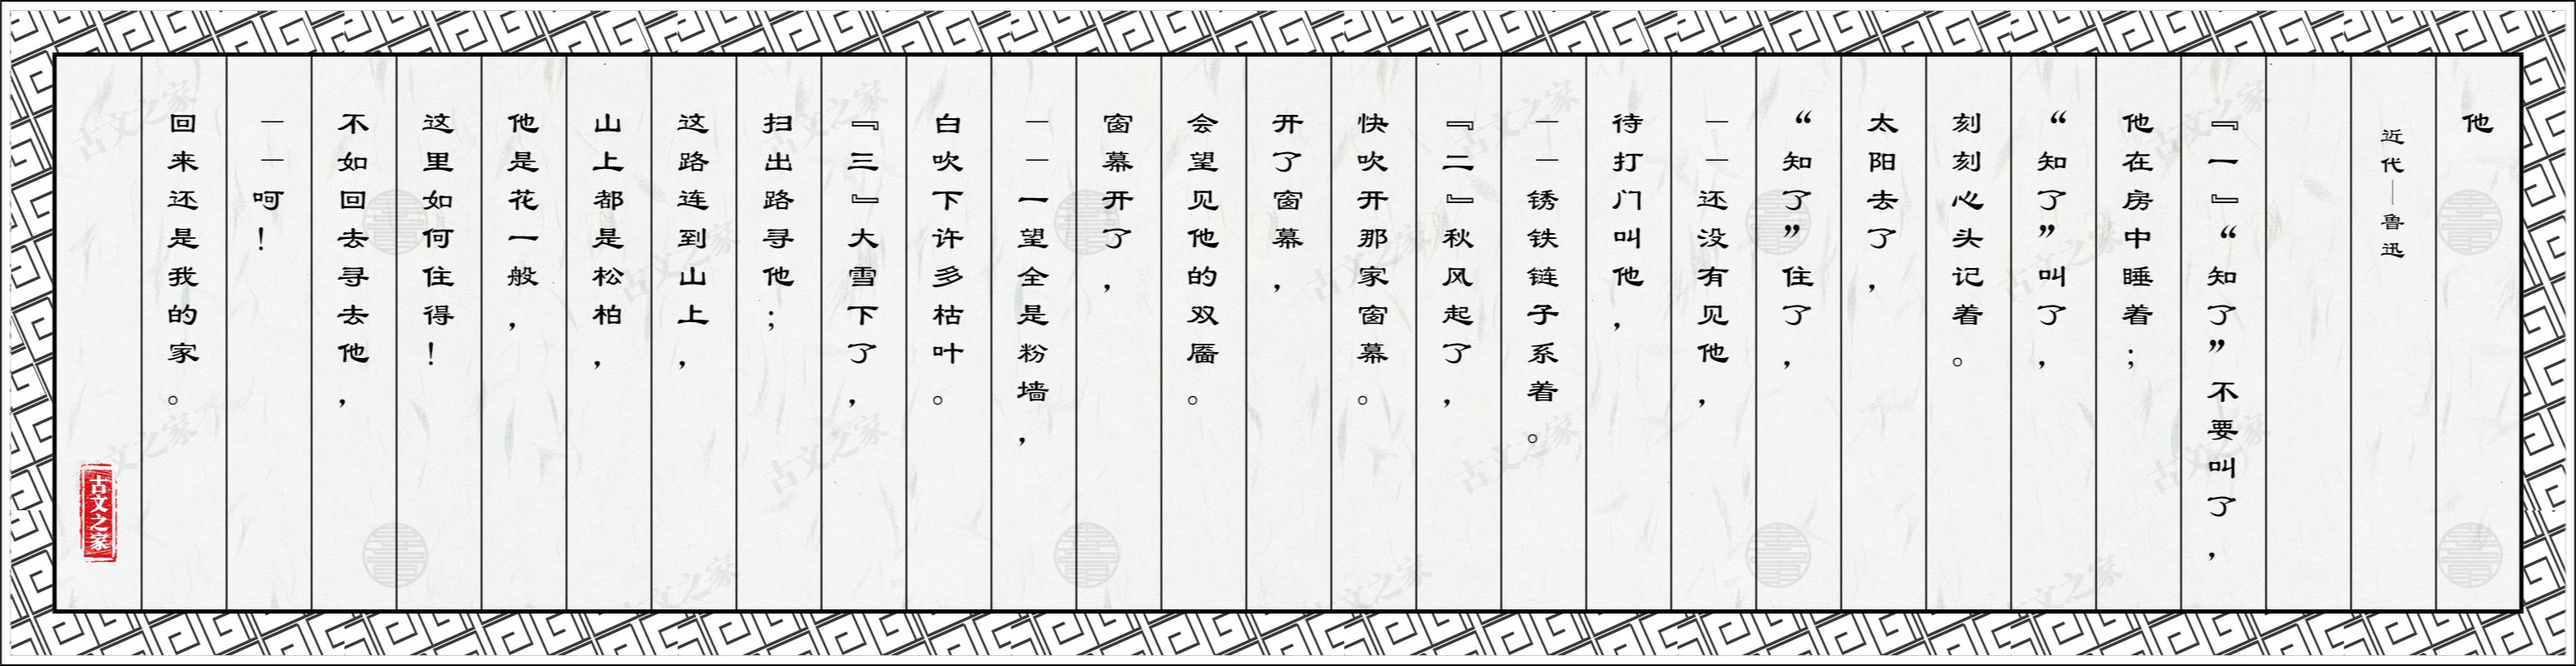 他
近代—鲁迅
『一』“知了”不要叫了，
他在房中睡着；
“知了”叫了，
刻刻心头记着。
太阳去了，
“知了”住了，
——还没有见他，
待打门叫他，
——锈铁链子系着。
『二』秋风起了，
快吹开那家窗幕。
开了窗幕，
会望见他的双靥。
窗幕开了，
——一望全是粉墙，
白吹下许多枯叶。
『三』大雪下了，
扫出路寻他；
这路连到山上，
山上都是松柏，
他是花一般，
这里如何住得！
不如回去寻去他，
——呵！
回来还是我的家。
古文之家